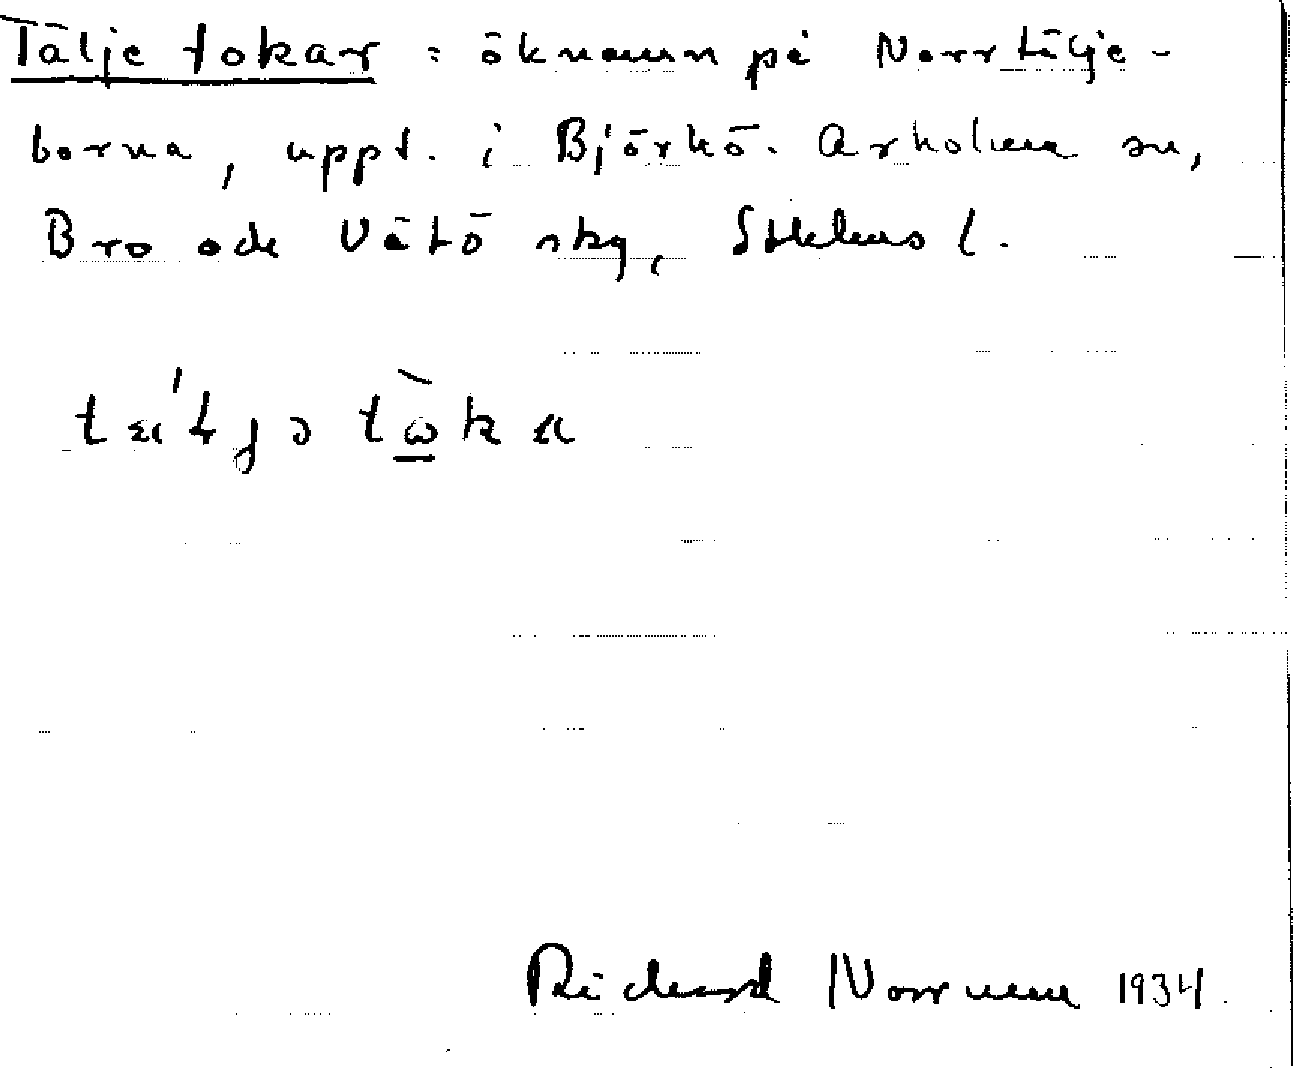 Tälje tokar = öknamn på Norrtälje-
borna, uppt. i Björkö-Arholma sn,
Bro och Vätö skg, Sthlms l.
Richard Norrman 1934